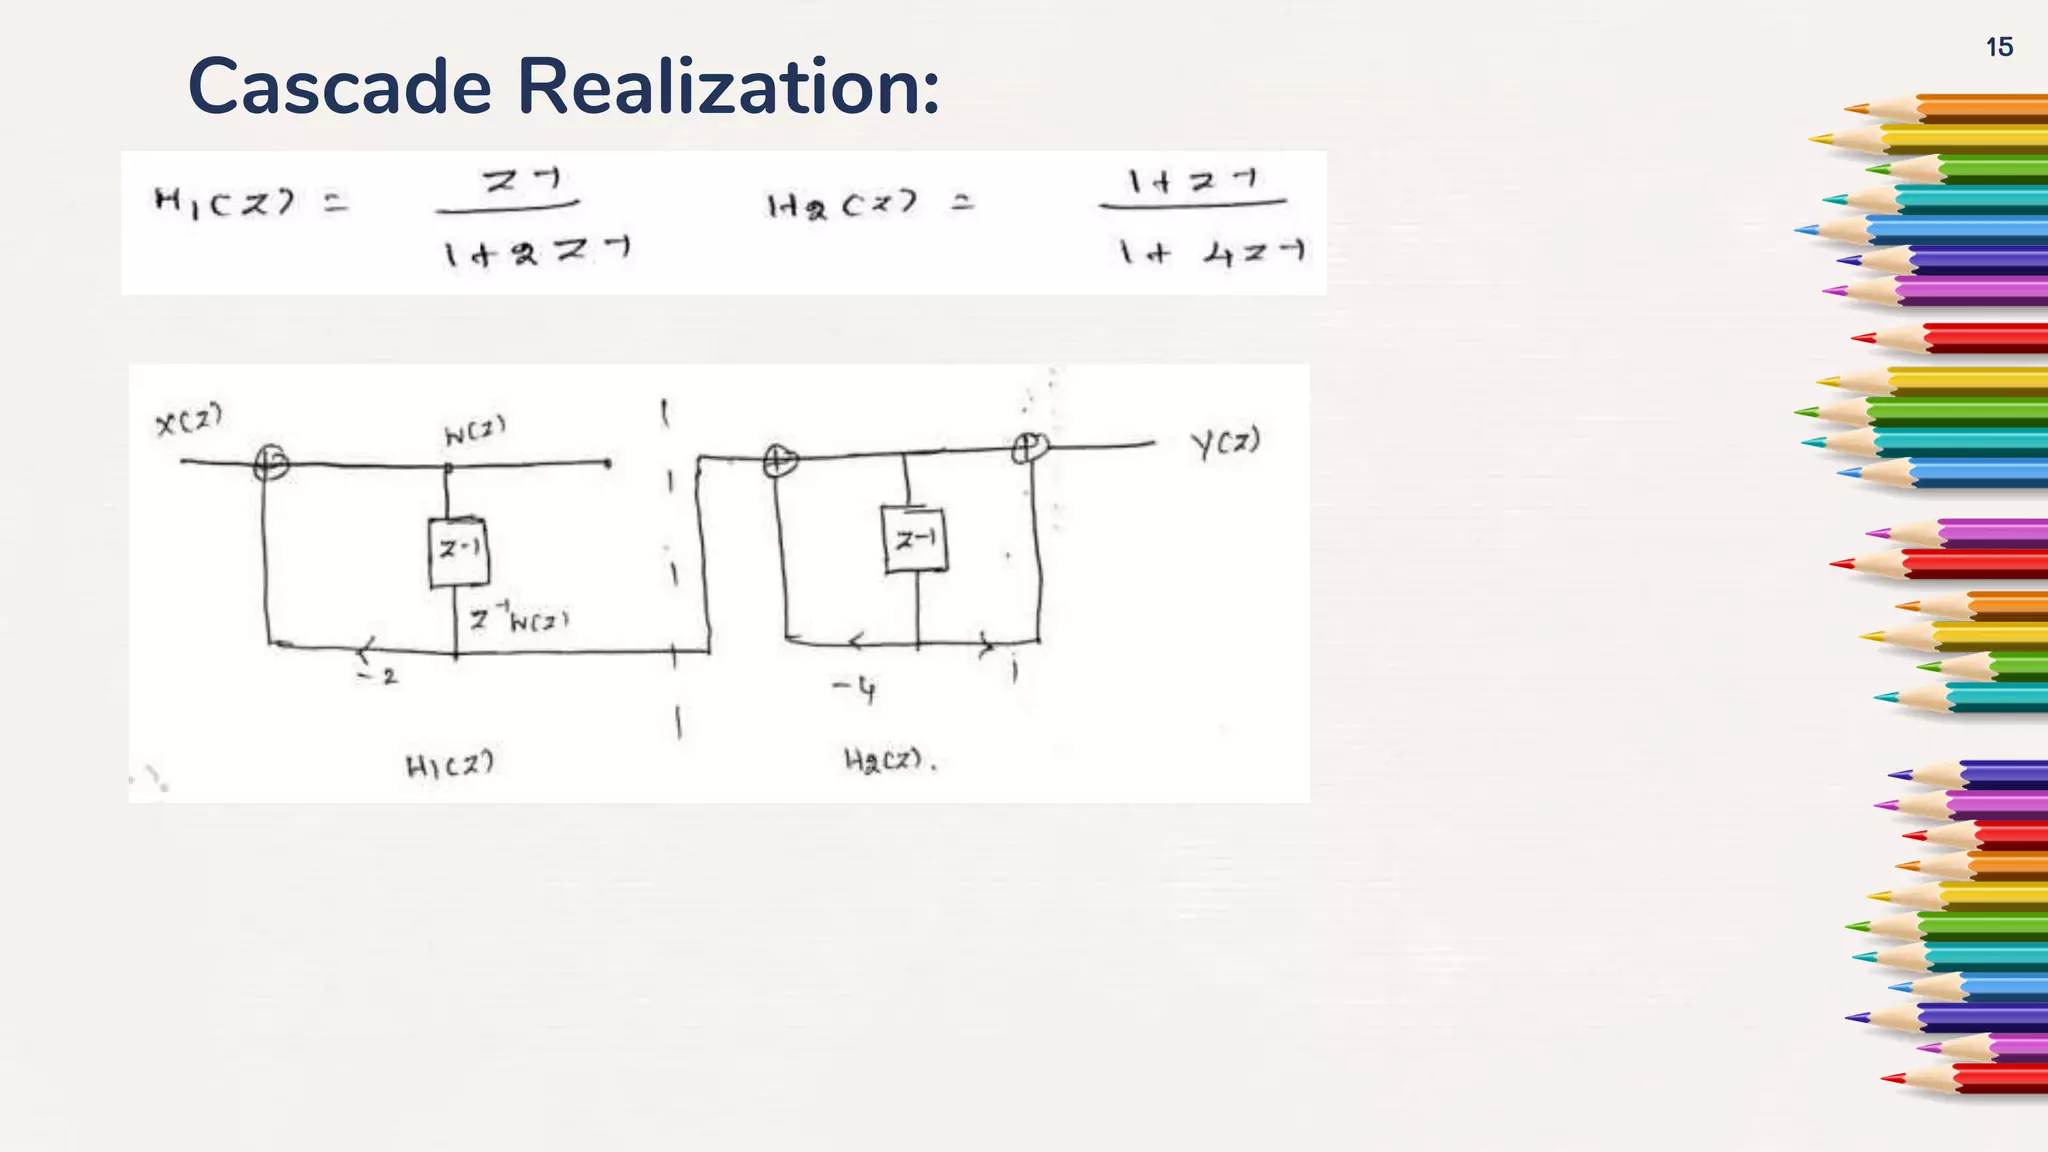 15
Cascade Realization:
H1(z) = z-1 / 1+2z-1 H2(z) = 1+z-1 / 1+4z-1
X(z) W(z) Y(z)
z-1 z-1
z-1W(z)
-2 -4 1
H1(z) H2(z).